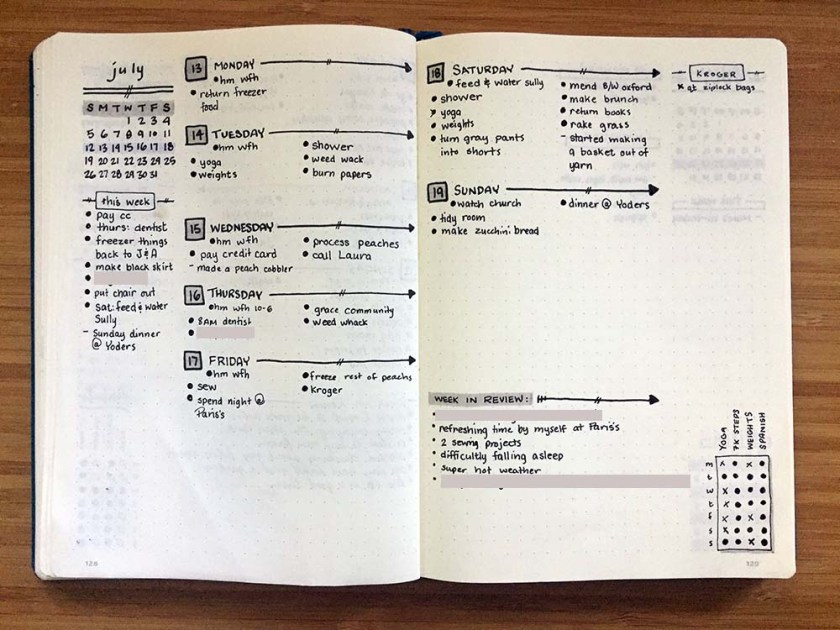 july
S M T W T F S
1 2 3 4
5 6 7 8 9 10 11
12 13 14 15 16 17 18
19 20 21 22 23 24 25
26 27 28 29 30 31
this week
• pay cc
• thurs: dentist
• freezer things
back to J&A
• make black skirt
•
• put chair out
• Sat: feed & water
Sully
- Sunday dinner
@ Yoders
13 MONDAY
• hm wfh
• return freezer
food
14 TUESDAY
• hm wfh
• yoga
• weights
• shower
• weed wack
• burn papers
15 WEDNESDAY
• hm wfh
• pay credit card
- made a peach cobbler
• process peaches
• call Laura
16 THURSDAY
• hm wfh 10-6
• 8AM dentist
•
• grace community
• weed whack
17 FRIDAY
• hm wfh
• sew
• spend night @
Paris's
• freeze rest of peachs
• Kroger
128
18 SATURDAY
• feed & water sully
• shower
x yoga
• weights
• turn gray pants
into shorts
• mend B/W oxford
• make brunch
• return books
• rake grass
- started making
a basket out of
yarn
KROGER
x qt. ziplock bags
19 SUNDAY
• watch church
• tidy room
• make zucchini bread
• dinner @ Yoders
WEEK IN REVIEW:
• refreshing time by myself at Paris's
• 2 sewing projects
• difficultly falling asleep
• super hot weather
YOGA
7K STEPS
WEIGHTS
SPANISH
m x • x •
t • • • •
w x • x •
t x • • •
f x • x •
s x • • •
s • • x •
129